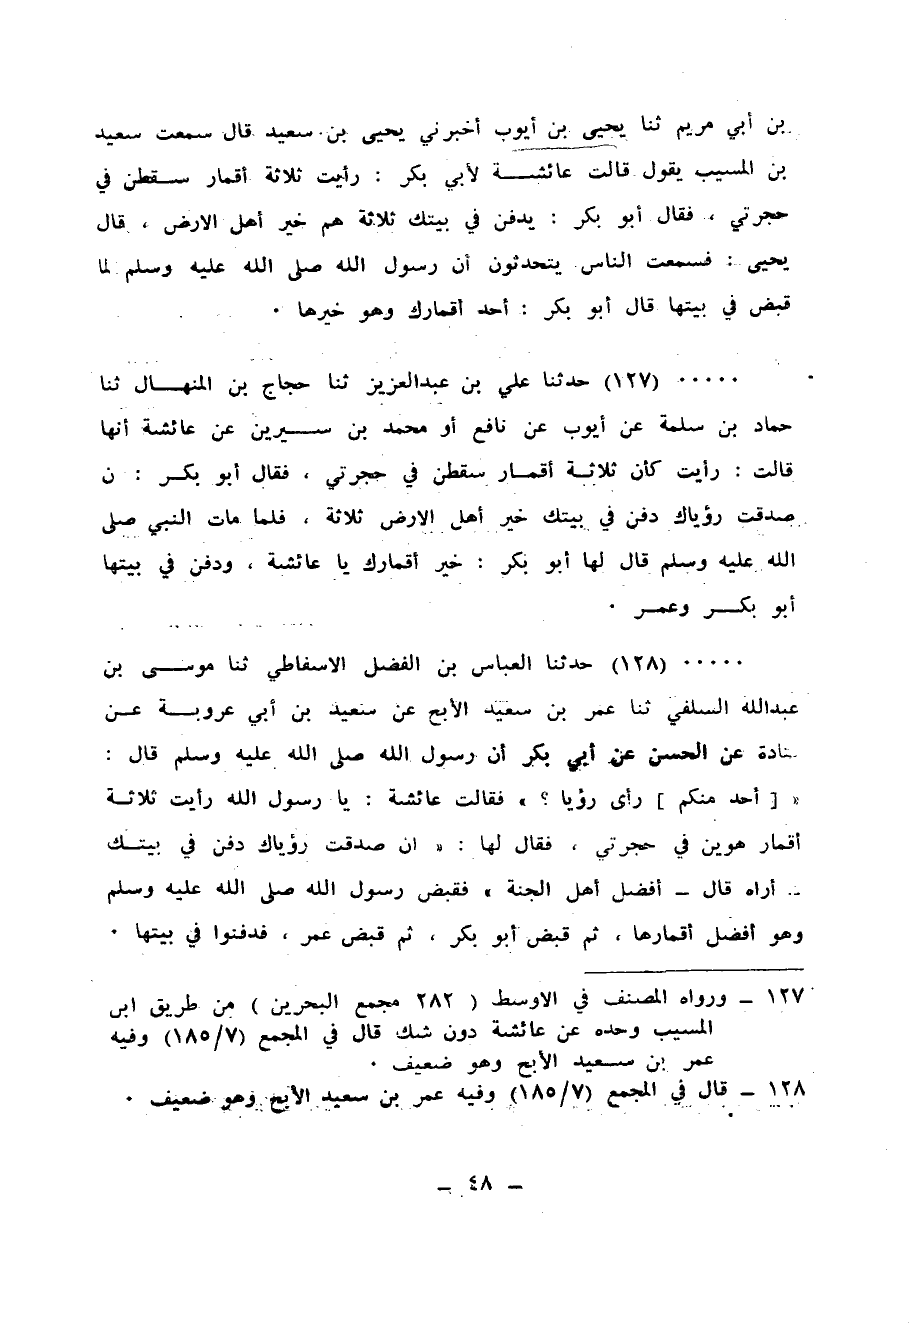 بن أبي مريم ثنا يحيى بن أيوب أخبرني يحيى بن سعيد قال سمعت سعيد
بن المسيب يقول قالت عائشة لأبي بكر : رأيت ثلاثة أقمار سقطن في
حجرتي ، فقال أبو بكر : يدفن في بيتك ثلاثة هم خير أهل الارض ، قال
يحيى : فسمعت الناس يتحدثون أن رسول الله صلى الله عليه وسلم لما
قبض في بيتها قال أبو بكر : أحد أقمارك وهو خيرها ٠
٠٠٠٠٠ (١٢٧) حدثنا علي بن عبدالعزيز ثنا حجاج بن المنهال ثنا
حماد بن سلمة عن أيوب عن نافع أو محمد بن سيرين عن عائشة أنها
قالت : رأيت كأن ثلاثة أقمار سقطن في حجرتي ، فقال أبو بكر : ن
صدقت رؤياك دفن في بيتك خير أهل الارض ثلاثة ، فلما مات النبي صلى
الله عليه وسلم قال لها أبو بكر : خير أقمارك يا عائشة ، ودفن في بيتها
أبو بكر وعمر ٠
٠٠٠٠٠ (١٢٨) حدثنا العباس بن الفضل الاسفاطي ثنا موسى بن
عبدالله السلفي ثنا عمر بن سعيد الأبح عن سعيد بن أبي عروبة عن
تادة عن الحسن عن أبي بكر أن رسول الله صلى الله عليه وسلم قال :
« [ أحد منكم ] رأى رؤيا ؟ » فقالت عائشة : يا رسول الله رأيت ثلاثة
أقمار هوين في حجرتي ، فقال لها : « ان صدقت رؤياك دفن في بيتك
ـ أراه قال ـ أفضل أهل الجنة » فقبض رسول الله صلى الله عليه وسلم
وهو أفضل أقمارها ، ثم قبض أبو بكر ، ثم قبض عمر ، فدفنوا في بيتها ٠
١٢٧ ـ ورواه المصنف في الاوسط ( ٢٨٢ مجمع البحرين ) من طريق ابن
المسيب وحده عن عائشة دون شك قال في المجمع (١٨٥/٧) وفيه
عمر بن سعيد الأبح وهو ضعيف ٠
١٢٨ ـ قال في المجمع (١٨٥/٧) وفيه عمر بن سعيد الأبح وهو ضعيف ٠
ـ ٤٨ ـ